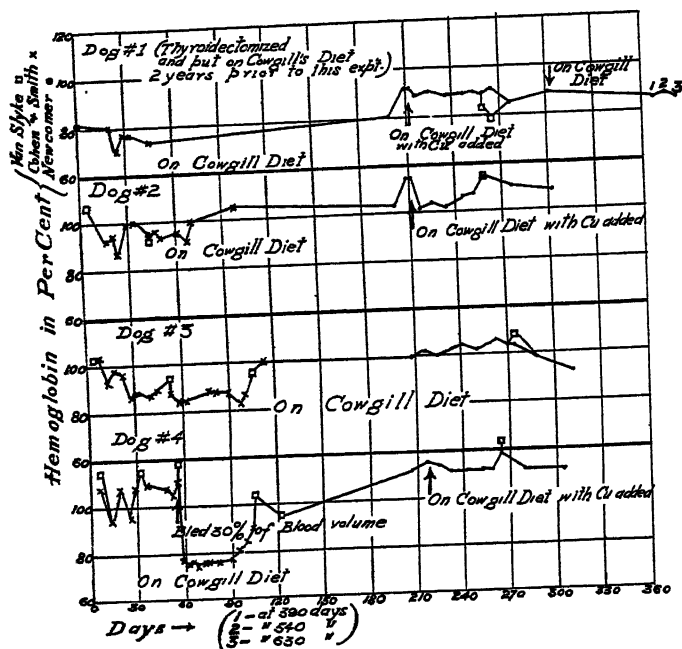 Van Slyke □
Cohen & Smith ×
Newcomer •
Hemoglobin in Per Cent
120
100
80
60
100
80
60
100
80
60
100
80
60
Dog #1 (Thyroidectomized
and put on Cowgill's Diet
2 years prior to this expt.)
On Cowgill Diet
On Cowgill Diet
with Cu added
On Cowgill
Diet
1 2 3
Dog #2
On Cowgill Diet
On Cowgill Diet with Cu added
Dog #3
On Cowgill Diet
Dog #4
Bled 30% of Blood volume
On Cowgill Diet
On Cowgill Diet with Cu added
0 30 60 90 120 150 180 210 240 270 300 330 360
Days →
(1 - at 390 days
2 - " 540 "
3 - " 630 ")